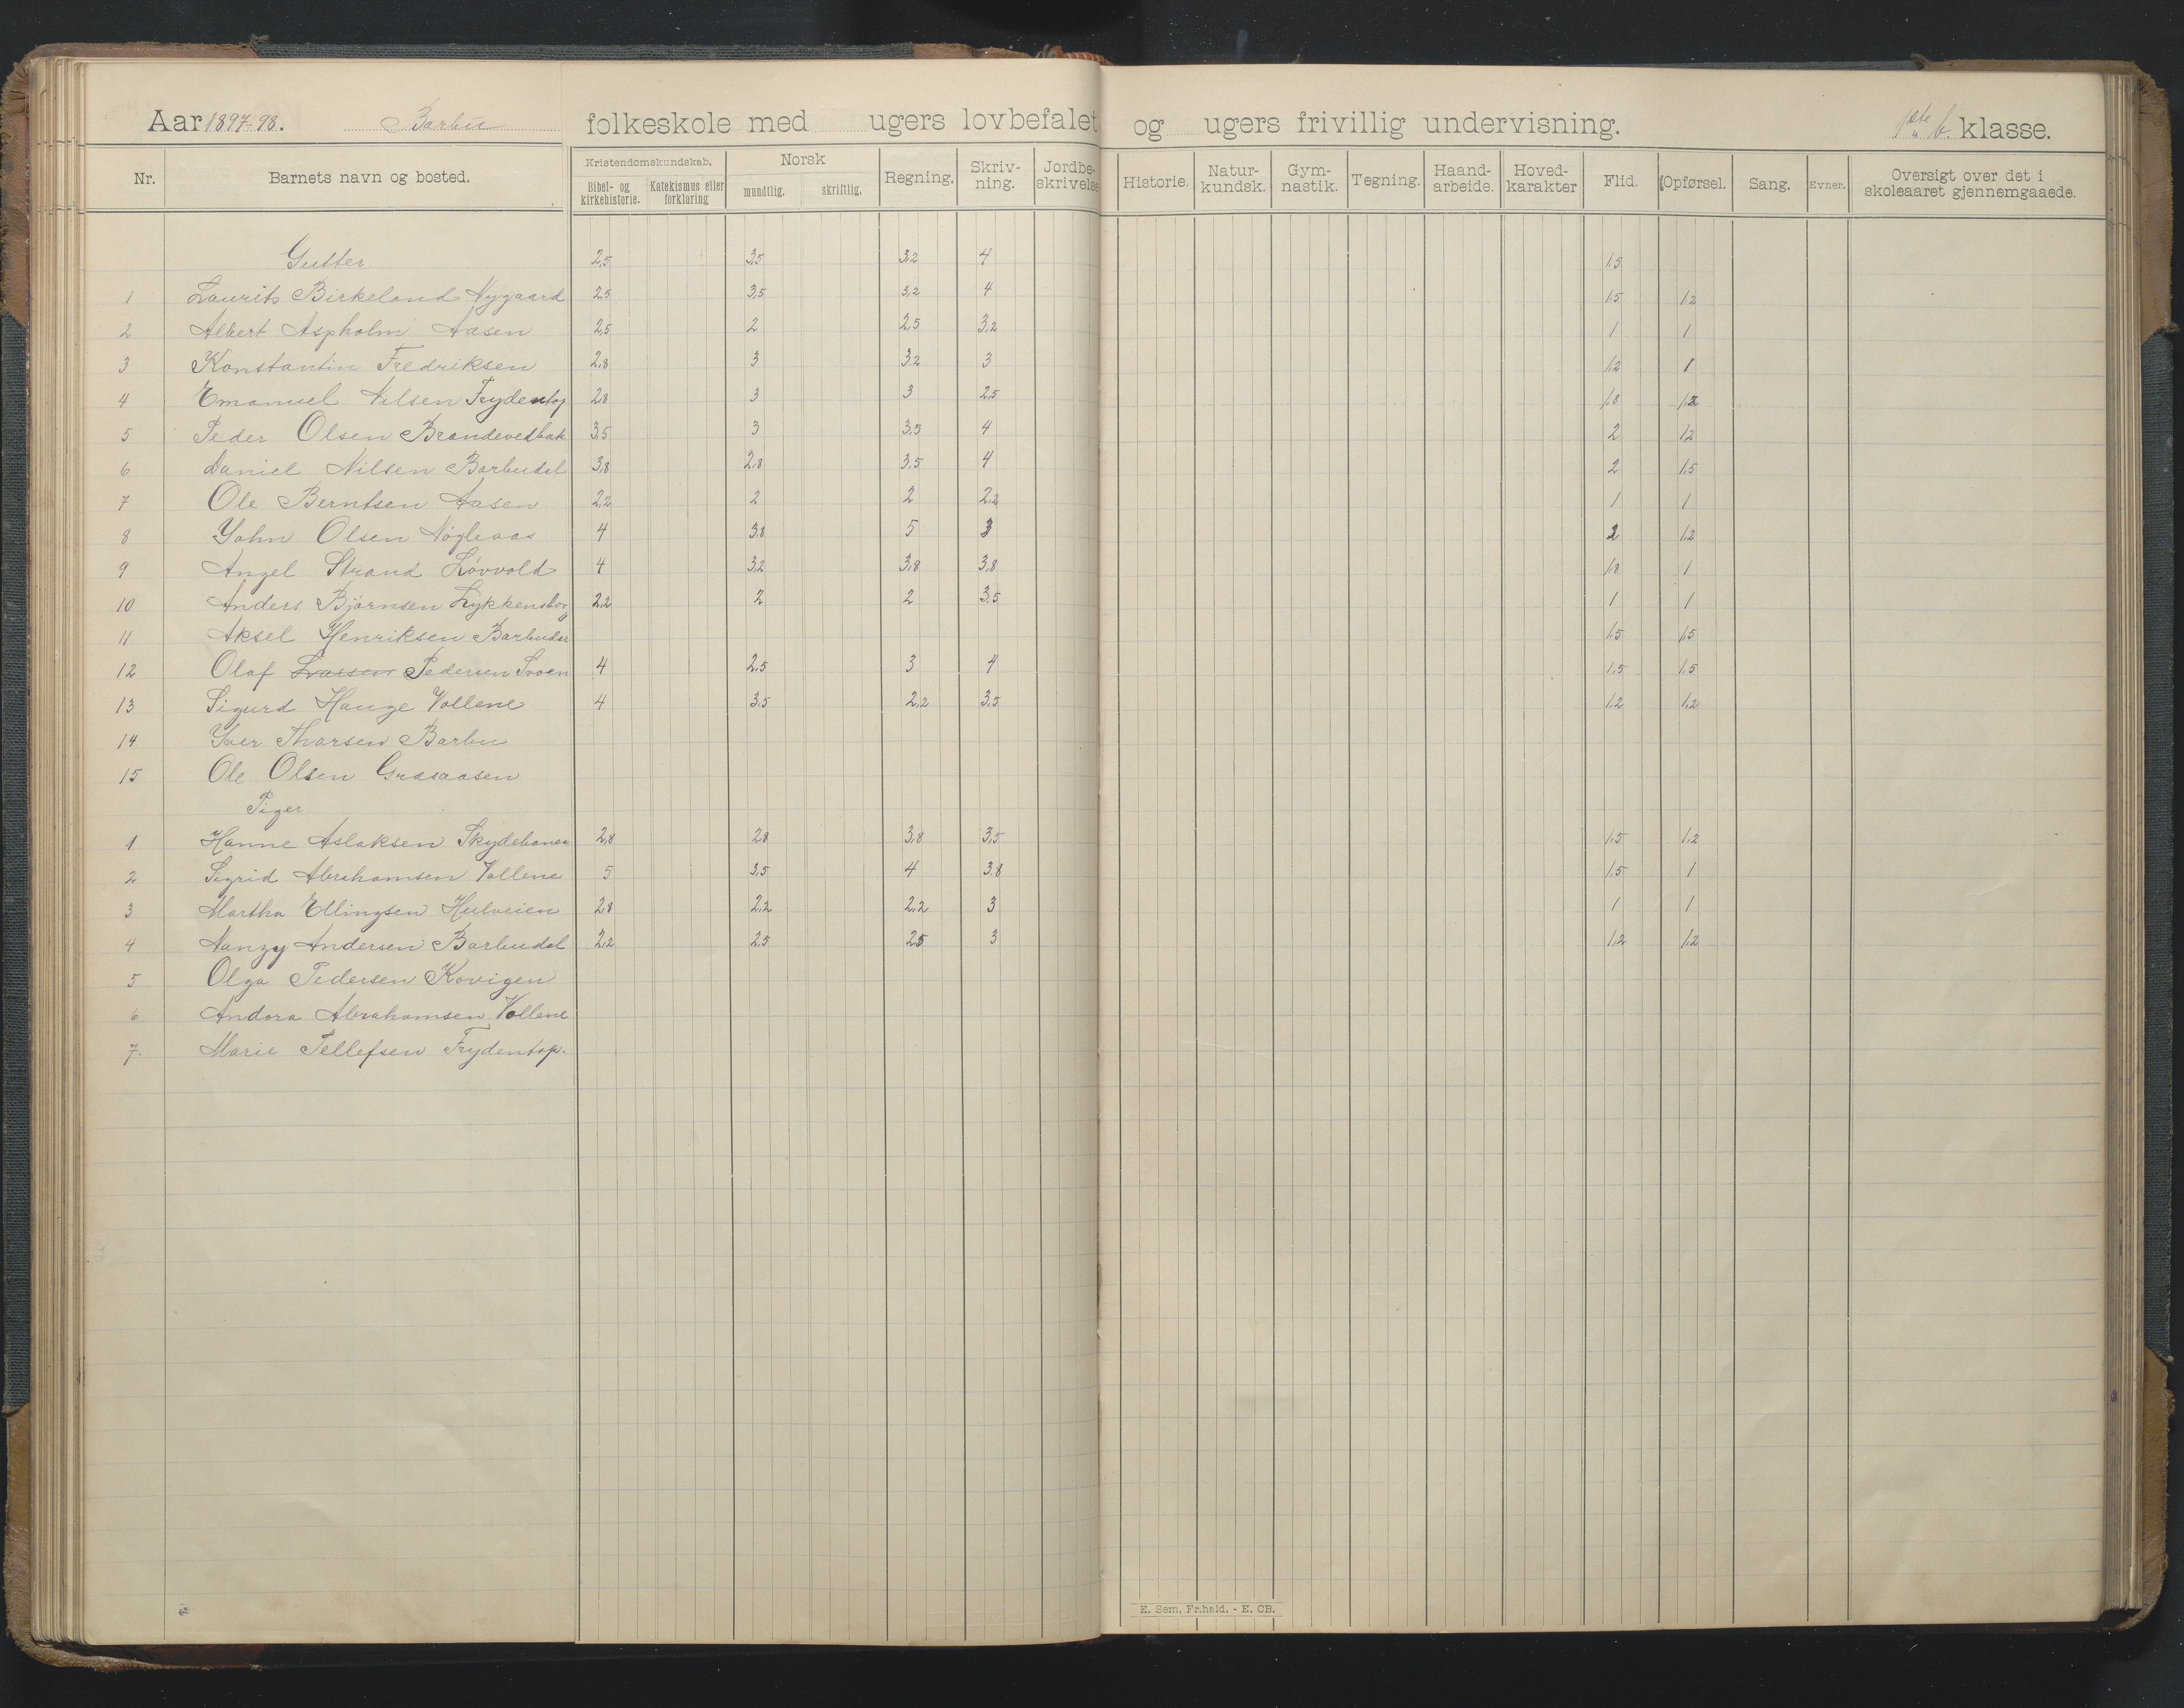 Aar 1897-98. Barbu folkeskole med ugers lovbefalet og ugers frivillig undervisning. 1ste b. klasse.
Nr. Barnets navn og bosted. Kristendomskundskab. Bibel- og kirkehistorie. Katekismus eller forklaring Norsk mundtlig. skriftlig. Regning. Skriv-ning. Jordbe-skrivelse Historie. Natur-kundsk. Gym-nastik. Tegning. Haand-arbeide. Hoved-karakter Flid. Opførsel. Sang. Evner. Oversigt over det i skoleaaret gjennemgaaede.
Gutter 2,5 3,5 3,2 4 1,5
1 Laurits Birkeland Nygaard 2,5 3,5 3,2 4 1,5 1,2
2 Albert Aspholm Aasen 2,5 2 2,5 3,2 1 1
3 Konstantin Fredriksen 2,8 3 3,2 3 1,2 1
4 Emanuel Nilsen Frydentop 2,8 3 3 2,5 1,8 1,2
5 Peder Olsen Brandevedbak 3,5 3 3,5 4 2 1,2
6 Daniel Nilsen Barbudal 3,8 2,8 3,5 4 2 1,5
7 Ole Berntsen Aasen 2,2 2 2 2,2 1 1
8 John Olsen Nøgleaas 4 3,8 5 3 2 1,2
9 Angel Strand Løvvold 4 3,2 3,8 3,8 1,8 1
10 Anders Bjørnsen Lykkensborg 2,2 2 2 3,5 1 1
11 Aksel Henriksen Barbudal 1,5 1,5
12 Olaf Larsen Pedersen 4 2,5 3 4 1,5 1,5
13 Sigurd Hauge Vollene 4 3,5 2,2 3,5 1,2 1,2
14 Iver Thorsen Barbu
15 Ole Olsen Græsaasen
Piger
1 Hanne Aslaksen Skydebanen 2,8 2,8 3,8 3,5 1,5 1,2
2 Sigrid Abrahamsen Vollene 5 3,5 4 3,8 1,5 1
3 Martha Ellingsen Hulveien 2,8 2,2 2,2 3 1 1
4 Nanzy Andersen Barbudal 2,2 2,5 2,5 3 1,2 1,2
5 Olga Pedersen Kovigen
6 Andora Abrahamsen Vollene
7. Marie Tellefsen Frydentop.
E. Sem, Fr.hald. - E. CB.